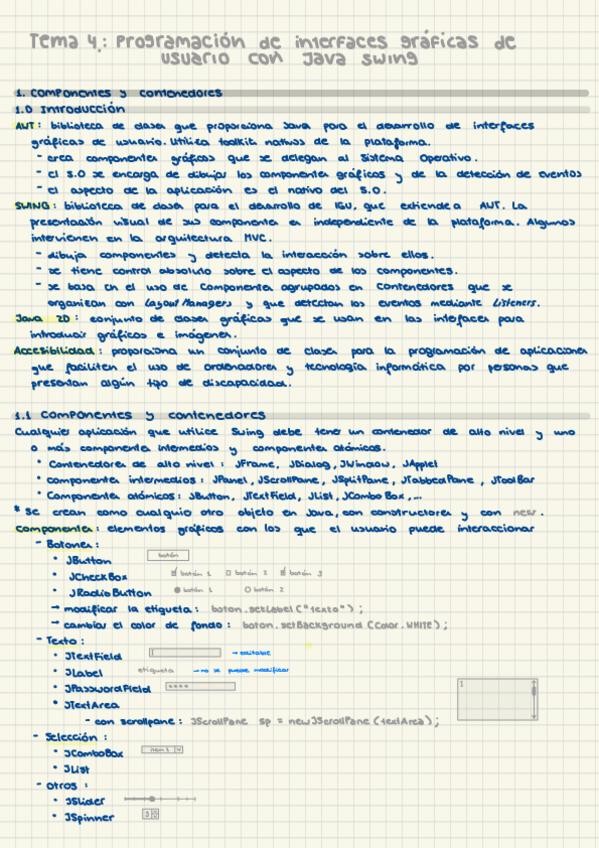 Tema 4: Programación de interfaces gráficas de
usuario con Java Swing
1. Componentes y contenedores
1.0 Introducción
AWT: biblioteca de clases que proporciona Java para el desarrollo de interfaces
gráficas de usuario. Utiliza toolkit nativos de la plataforma.
- crea componentes gráficos que se delegan al Sistema Operativo.
- el S.O se encarga de dibujar los componentes gráficos y de la detección de eventos
- el aspecto de la aplicación es el nativo del S.O.
SWING: biblioteca de clases para el desarrollo de IGU, que extiende a AWT. La
presentación visual de sus componentes es independiente de la plataforma. Algunos
intervienen en la arquitectura MVC.
- dibuja componentes y detecta la interacción sobre ellos.
- se tiene control absoluto sobre el aspecto de los componentes.
- se basa en el uso de Componentes agrupados en Contenedores que se
organizan con LayoutManagers y que detectan los eventos mediante Listeners.
Java 2D: conjunto de clases gráficas que se usan en las interfaces para
introducir gráficos e imágenes.
Accesibilidad: proporciona un conjunto de clases para la programación de aplicaciones
que faciliten el uso de ordenadores y tecnología informática por personas que
presentan algún tipo de discapacidad.
1.1 Componentes y contenedores
Cualquier aplicación que utilice Swing debe tener un contenedor de alto nivel y uno
o más componentes intermedios y componentes atómicos.
• Contenedores de alto nivel: JFrame, JDialog, JWindow, JApplet
• componentes intermedios: JPanel, JScrollPane, JSplitPane, JTabbedPane, JToolBar
• Componentes atómicos: JButton, JTextField, JList, JComboBox,...
* Se crean como cualquier otro objeto en Java, con constructores y con new.
Componentes: elementos gráficos con los que el usuario puede interaccionar
- Botones:
• JButton botón
• JCheckBox botón 1 botón 2 botón 3
• JRadioButton botón 1 botón 2
→ modificar la etiqueta: boton.setLabel("texto");
→ cambiar el color de fondo: boton.setBackground(Color.WHITE);
- Texto:
• JTextField → editable
• JLabel etiqueta → no se puede modificar
• JPasswordField ****
• JTextArea 1
- con scrollpane: JScrollPane sp = new JScrollPane(textArea);
- Selección:
• JComboBox item 1
• JList
- Otros:
• JSlider
• JSpinner 3